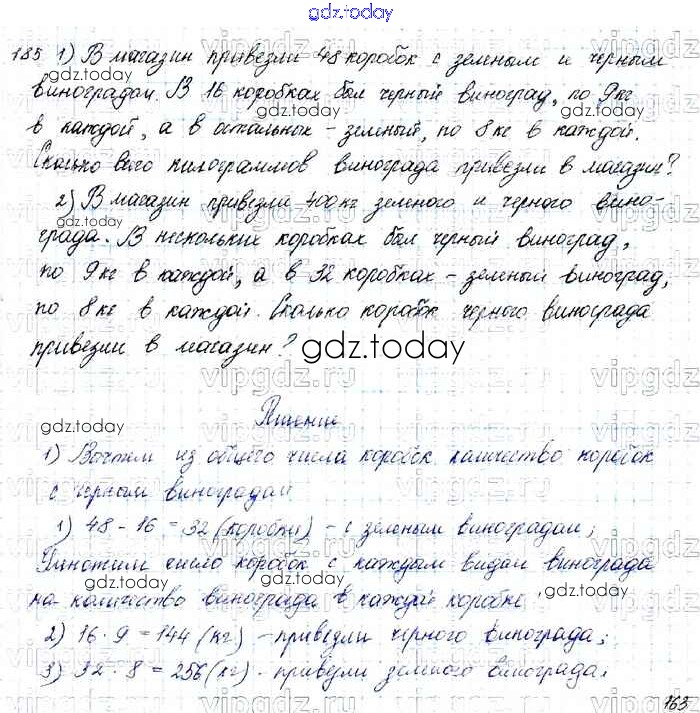 gdz.today
185 1) В магазин привезли 48 коробок с зеленым и черным
gdz.today
виноградом. В 16 коробках был черный виноград, по 9 кг
в каждой, а в остальных – зеленый, по 8 кг в каждой.
gdz.today
Сколько всего килограммов винограда привезли в магазин?
2) В магазин привезли 400 кг зеленого и черного вино-
gdz.today
града. В нескольких коробках был черный виноград,
по 9 кг в каждой, а в 32 коробках – зеленый виноград,
gdz.today
по 8 кг в каждой. Сколько коробок черного винограда
привезли в магазин?
gdz.today
vipgdz.ru
Решение
gdz.today
1) Вычтем из общего числа коробок количество коробок
с черным виноградом
1) 48 - 16 = 32 (коробки) - с зеленым виноградом;
Умножим число коробок с каждым видом винограда
gdz.today gdz.today
на количество винограда в каждой коробке
2) 16 · 9 = 144 (кг) - привезли черного винограда;
gdz.today
3) 32 · 8 = 256 (кг) - привезли зеленого винограда.
163